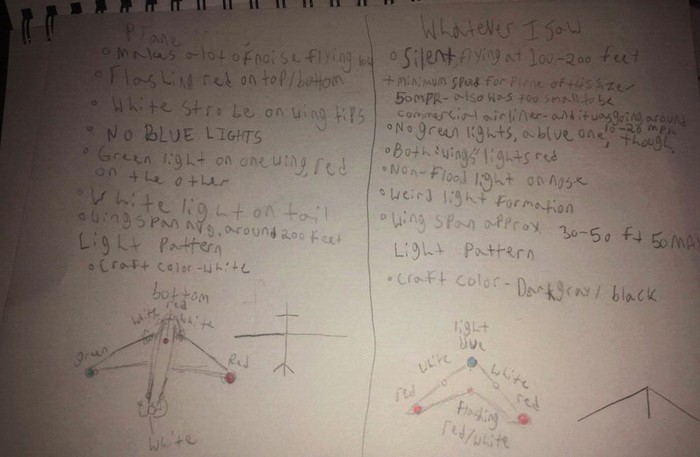 Plane
• Makes a lot of noise flying low
• Flashing red on top/bottom
• White strobe on wing tips
• NO BLUE LIGHTS
• Green light on one wing, red
on the other
• White light on tail
• Wingspan avg. around 200 feet
Light Pattern
• Craft color-White
bottom
red
white white
green
Red
white
Whatever I saw
• Silent, flying at 100-200 feet
+ minimum speed for plane of this size
50MPH- also was too small to be
commercial airliner- and it was going around
10-20 mph
• No green lights, a blue one, though
• Both wings' lights red
• Non-Flood light on nose
• Weird light formation
• Wing span approx 30-50 ft 50MAX
Light Pattern
• Craft color- Dark gray/ black
light
blue
white white
red red
flashing
red/white